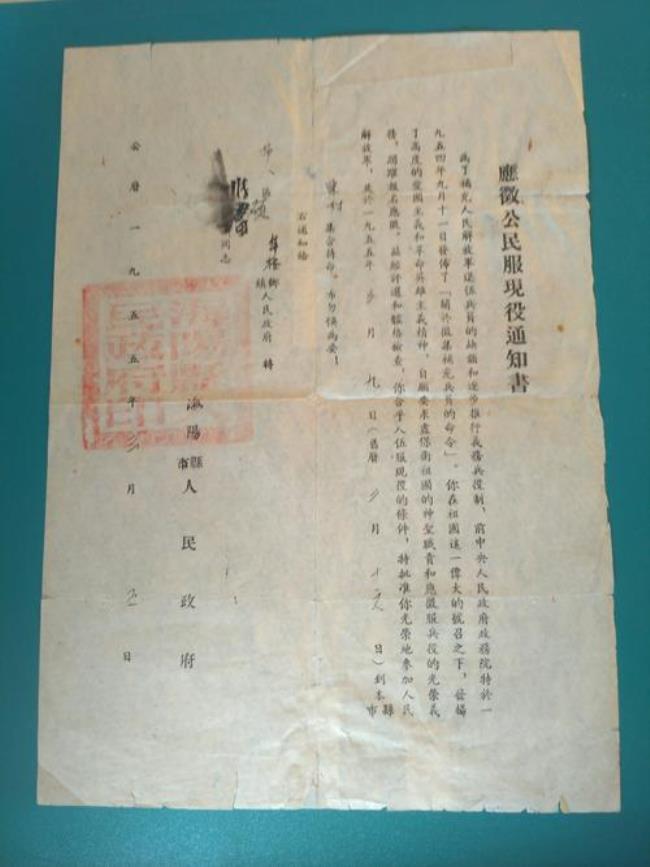 應徵公民服現役通知書
為了補充人民解放軍退伍兵員的缺額和逐步推行義務兵役制，前中央人民政府政務院特於一
九五四年九月十一日發佈了「關於徵集補充兵員的命令」。你在祖國這一偉大的號召之下，發揚
了高度的愛國主義和革命英雄主義精神，自願要求盡保衛祖國的神聖職責和應徵服兵役的光榮義
務，踴躍報名應徵。茲經評選和體格檢查，你合乎入伍服現役的條件，特批准你光榮地參加人民
解放軍，並於一九五五年 月九日（舊曆 月十 日）到本縣市
集合待命，希勿悞為要！
右通知給
區 鄉鎮人民政府 轉
同志
陽縣市人民政府
公曆一九五五年 月 日